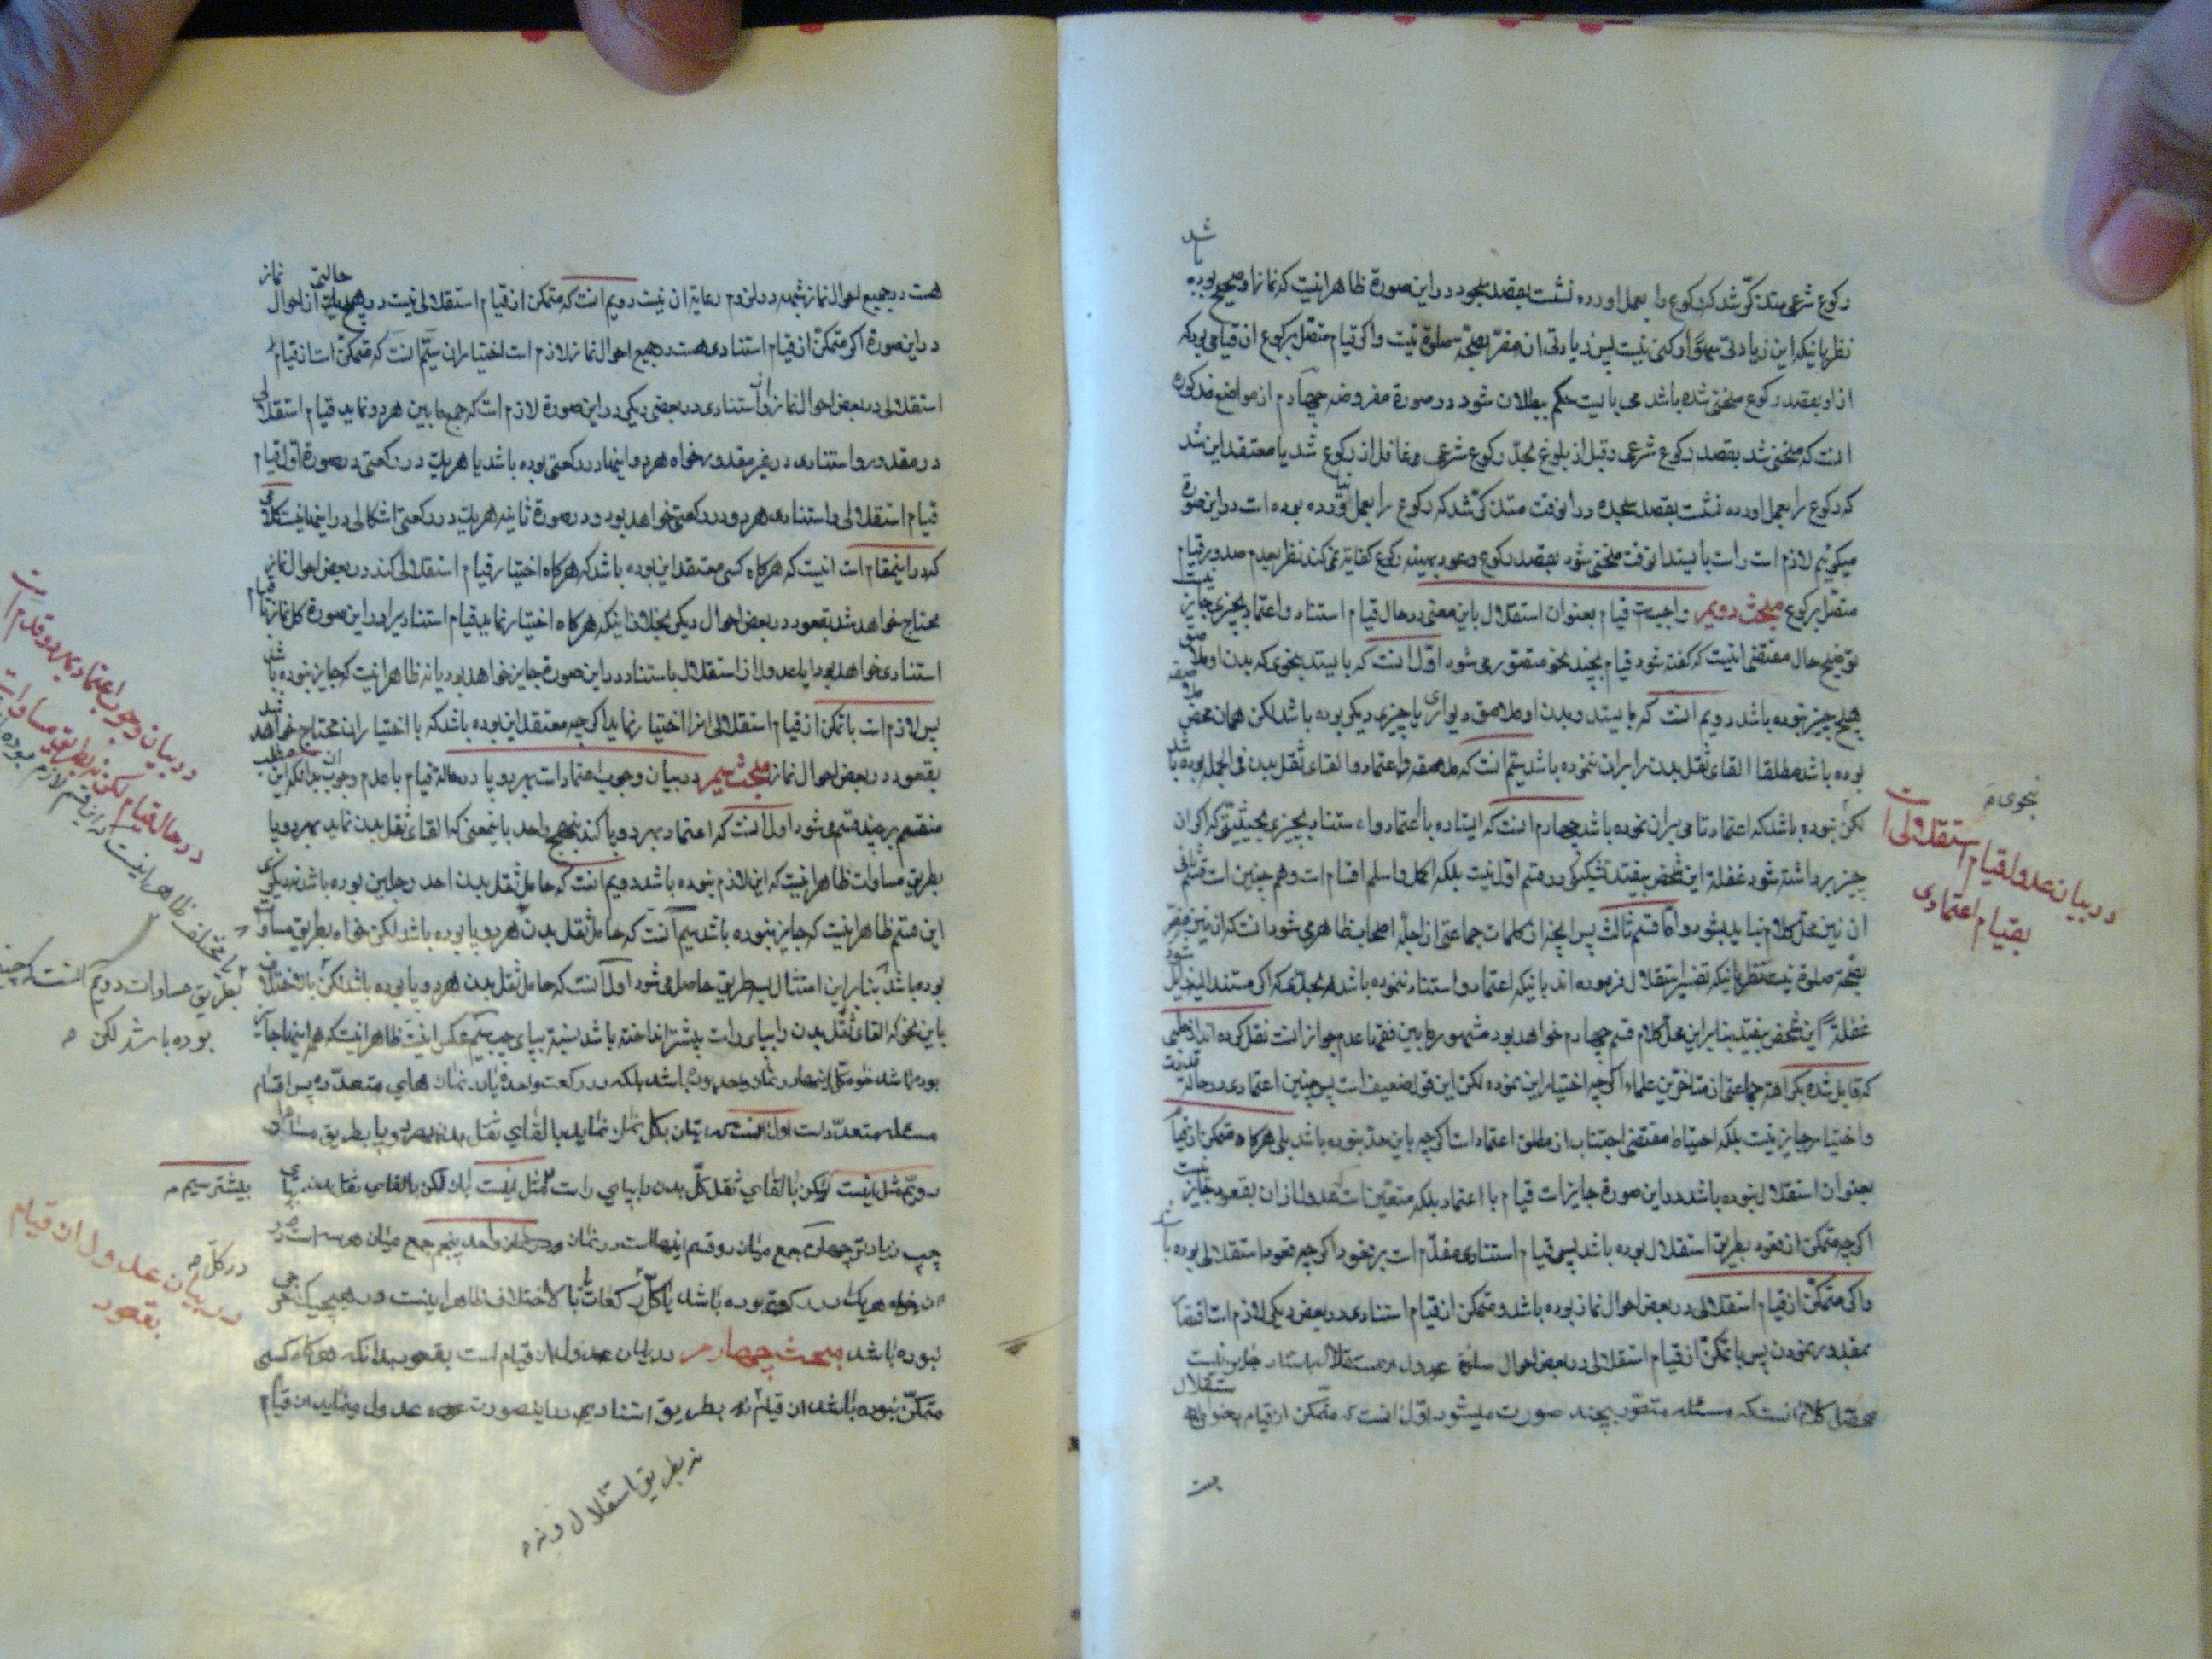 رکوع شرعی متذکر شد که رکوع را بعمل اورده نشست بقصد سجود در این صورة ظاهر اینست که نماز او صحیح بوده باشد
نظر باینکه این زیادتی سهوا رکنی نیست پس زیادتی ان مضر بصحة صلوة نیست و اکر قیام متصل برکوع ان قیامی بود که
از او بقصد رکوع منحنی شده باشد می بایست حکم ببطلان شود در صورة مفروضه چهارم از مواضع مذکوره
انست که منحنی شد بقصد رکوع شرعی و قبل از بلوغ بحد رکوع شرعی غافل از رکوع شد یا معتقد این شد
که رکوع را بعمل اورده نشست بقصد سجده در انوقت متذکر شد که رکوع را بعمل نیاورده بوده است در این صورة
میکوئیم لازم است راست بایستد انوقت منحنی شود بقصد رکوع و عود بهیئة رکوع کفایة نمی کند نظر بعدم صدور قیام
متصل برکوع مبحث دویم واجبست قیام بعنوان استقلال باین معنی در حال قیام استناد و اعتماد بچیزی جایز نیست
توضیح حال مقتضی اینست که کفته شود قیام بچند نحو متصور می شود اول انست که بایستد بنحوی که بدن او ملاصق
هیچ چیز نبوده باشد دویم انست که بایستد و بدن او ملاصق دیواری یا چیزی دیکر بوده باشد لکن همان محض ملاصقه
بوده باشد مطلقا القاء ثقل بدن را بران ننموده باشد سیم انست که ملاصقه و اعتماد و القاء ثقل بدن فی الجمله بوده باشد
لکن نبوده باشد که اعتماد تامی بران نموده باشد چهارم انست که ایستاده با اعتماد و استناد بچیزی بحیثیتی که اکر ان
چیز برداشته شود غفلة این شخص بیفتد شکی در قسم اول نیست بلکه اکمل و اسلم اقسام است و هم چنین است قسم ثانی
ان نیز محل کلام نباید بشود و اما قسم ثالث پس انچه از کلمات جماعتی از اجلة اصحاب ظاهر می شود انست که ان نیز مضر
بصحة صلوة نیست نظر باینکه تفسیر استقلال فرموده اند باینکه اعتماد و استناد ننموده باشد بحدی که اکر مستند الیه زایل شود
غفلة این شخص بیفتد بنابراین محل کلام قسم چهارم خواهد بود مشهور ما بین فقهاء عدم جواز است نقل کرده اند از حلبی
که قایل شده بکراهة جماعتی از متاخرین علماء اکرچه اختیار این نموده لکن این قول ضعیف است پس چنین اعتمادی در حالة قدرت
و اختیار جایز نیست بلکه احتیاط مقتضی اجتناب از مطلق اعتماد است اکرچه باین حد نبوده باشد بلی هرکاه متمکن از قیام
بعنوان استقلال نبوده باشد در این صورة جایز است قیام با اعتماد بلکه متعین است عدول از ان بقعود جایز نیست
اکرچه متمکن از قعود بطریق استقلال بوده باشد پس قیام استنادی مقدم است بر قعود اکرچه قعود استقلالی بوده باشد
و اکر متمکن از قیام استقلالی در بعض احوال نماز بوده باشد و متمکن از قیام استنادی در بعض دیکر لازم است اقتصار
بمقدور نمودن پس با تمکن از قیام استقلالی در بعض احوال صلوة عدول از استقلال باستناد جایز نیست
محصل کلام انستکه مسئله متصور بچند صورت میشود اول انست که متمکن از قیام بعنوان استقلال
هست
بنحوی
در بیان عدول قیام استقلالی است
بقیام اعتمادی
هست در جمیع احوال نماز شبهه در لزوم رعایة ان نیست دویم انست که متمکن از قیام استقلالی نیست در هیچ حالتی از احوال نماز
در این صورة اکر متمکن از قیام استنادی هست در جمیع احوال نماز لازم است اختیار ان سیم انست که متمکن است از قیام
استقلالی در بعض احوال نماز و از استنادی در بعضی دیکر در این صورة لازم است که جمع ما بین هر دو نماید قیام استقلالی
در مقدور و استنادی در غیر مقدور خواه هر دو اینها در رکعتی بوده باشد یا هر یک در رکعتی در صورة اولی قیام
قیام استقلالی و استنادی هر دو در رکعتی خواهد بود و در صورة ثانیه هر یک در رکعتی اشکالی در اینها نیست کلامی
که در اینمقام است اینست که هرکاه کسی معتقد این بوده باشد که هرکاه اختیار قیام استقلالی کند در بعض احوال نماز
محتاج خواهد شد بقعود در بعض احوال دیکر بخلاف اینکه هرکاه اختیار نماید قیام استنادیرا در این صورة کل نماز با قیام
استنادی خواهد بود ایا عدول از استقلال باستناد در این صورة جایز خواهد بود یا نه ظاهر اینست که جایز نبوده باشد
پس لازم است با تمکن از قیام استقلالی انرا اختیار نماید اکرچه معتقد این بوده باشد که با اختیار ان محتاج خواهد شد
بقعود در بعض احوال نماز مبحث سیم در بیان وجوب اعتماد است بهر دو پا در حالة قیام با عدم وجوب ان بدانکه این مطلب
منقسم بر چند قسم می شود اول انست که اعتماد بهر دو پا کند بنهج واحد باینمعنی که القاء ثقل بدن نماید بهر دو پا
بطریق مساوات ظاهر اینست که این لازم نبوده باشد دویم انست که حامل ثقل بدن احد رجلین بوده باشد نه دیکری
این قسم ظاهر اینست که جایز نبوده باشد سیم انست که حامل ثقل بدن هر دو پا بوده باشد لکن خواه بطریق مساوات
بوده باشد بنابراین امتثال بسه طریق حاصل می شود اول انست که حامل ثقل بدن هر دو پا بوده باشد لکن با اختلاف
باین نحو که القاء ثقل بدن را بپای راست بیشتر انداخته باشد نسبة بپای چپ سیم عکس اینست ظاهر اینست که همه اینها جایز
مسئله متعدد است اول انست که اتیان بکل نماز نماید با القای ثقل بدن بهر دو پا بطریق مساوات
دویم مثل اینست لکن با القای ثقل کل بدن را بپای راست مثل اینست لکن با القای ثقل بدن بپای
چپ زیادتر چهارم جمع میان دو قسم اینهاست در نماز واحد پنجم جمع میان هر سه است در
نبوده باشد مبحث چهارم در بیان عدول از قیام است بقعود بدانکه هرکاه کسی
متمکن نبوده باشد از قیام نه بطریق استنادیه در اینصورت عدول مینماید از قیام
نه بطریق استقلال و نه
در بیان وجوب اعتماد بهر دو قدم است
در حال قیام لکن نه بطریق مساوات
بطریق مساوات دویم انست که
بوده باشد لکن
بیشتر سیم
در کل
در بیان عدول از قیام
بقعود